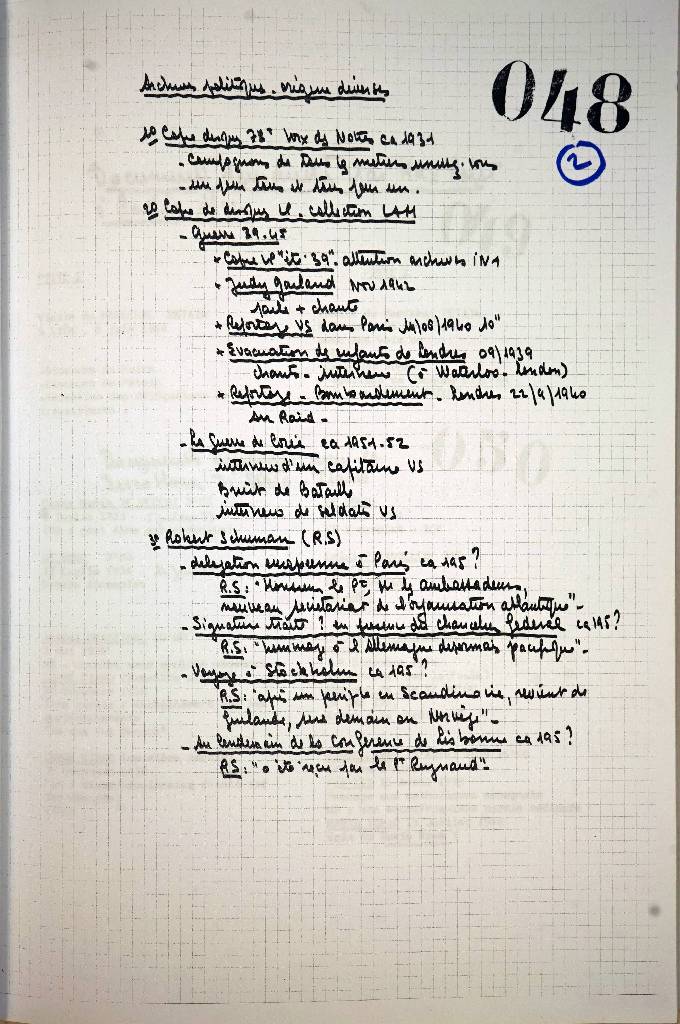 048
2
Archives politiques. origine diverses
1º Copie disques 78t Voix des Nôtres ca 1931
- Compagnons de tous les métiers unissez-vous
- un pour tous et tous pour un.
2º Copie de disques LP. collection LAM
- Guerre 39.45
* Copie LP "été 39". attention archives INA
* Judy Garland Nov 1942
parle + chante
* Reportage VS dans Paris 14/08/1940 10"
* Evacuation de enfants de Londres 09/1939
chants - interview (à Waterloo - London)
* Reportage - Bombardement - Londres 22/9/1940
Air Raid -
- La Guerre de Corée ca 1951-52
interview d'un capitaine VS
Bruit de Bataille
interviews de soldats VS
3º Robert Schuman (R.S)
- délégation européenne à Paris ca 195?
R.S: "Monsieur le Pt, MM les ambassadeurs,
nouveau secrétariat de l'organisation atlantique"-
- Signature traité ? en présence du chancelier fédéral ca 195?
R.S: "hommage à l'Allemagne désormais pacifique"-
- Voyage à Stockholm ca 195?
R.S: "après un périple en Scandinavie, revient de
Finlande, sera demain en Norvège"-
- Au lendemain de la Conférence de Lisbonne ca 195?
R.S: "a été reçu par le Pt Reynaud"-